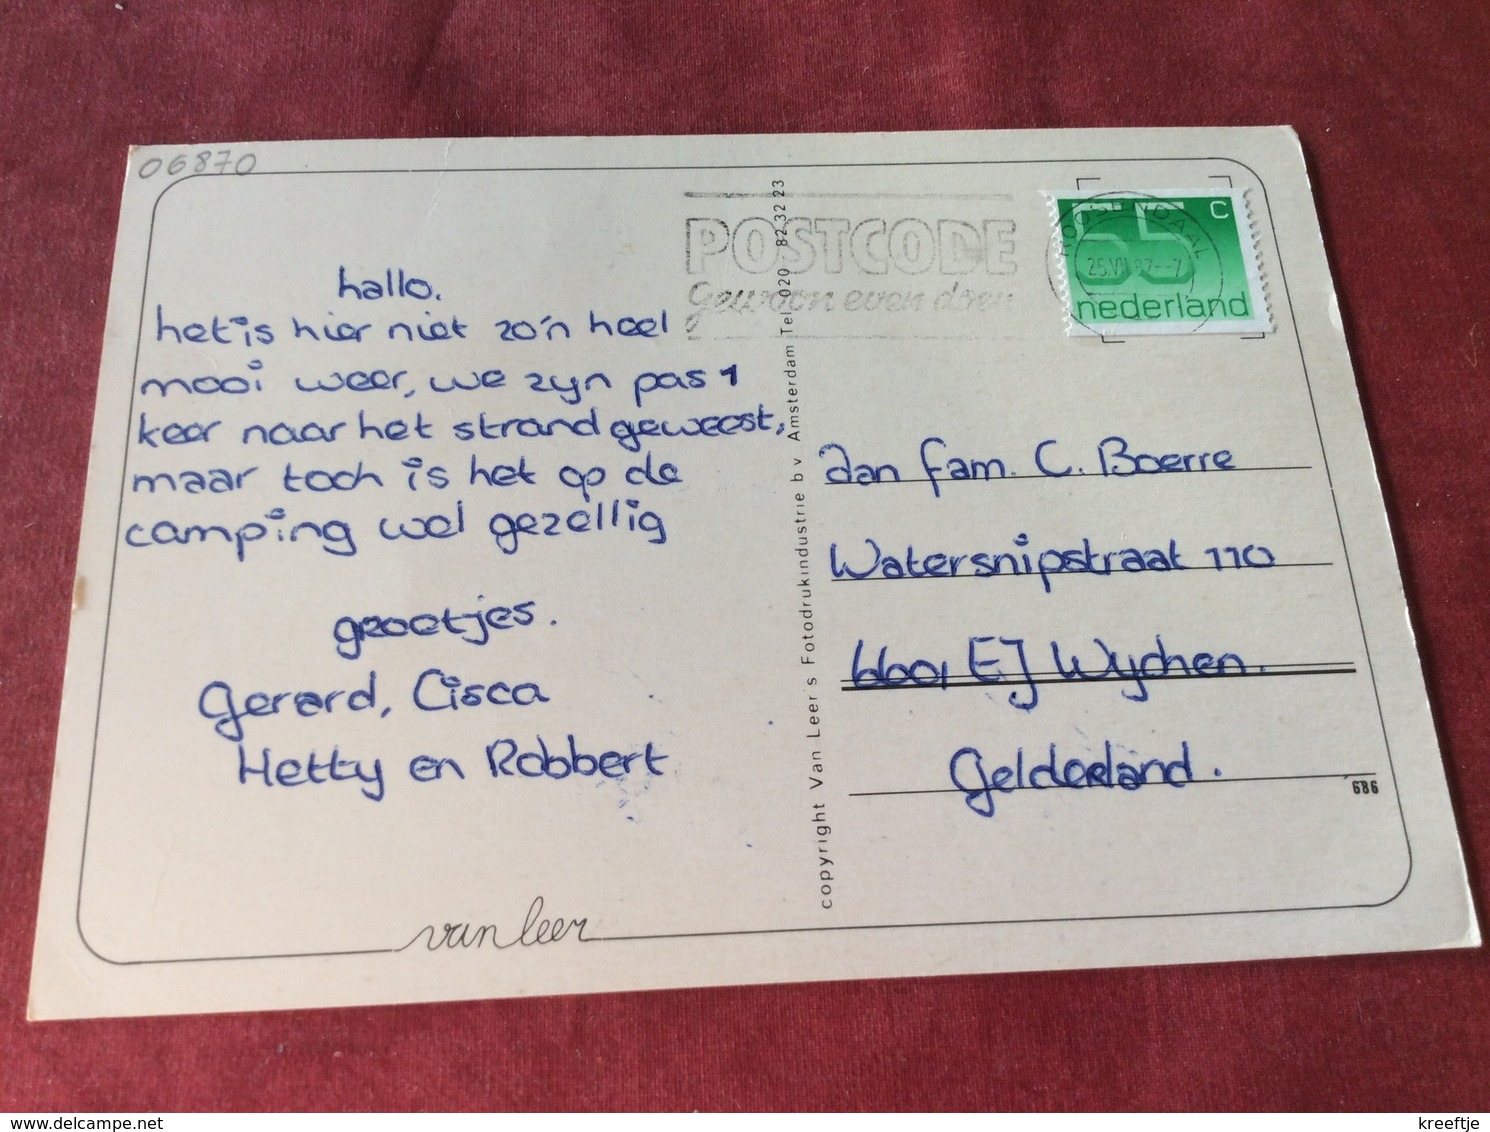 06870
hallo.
het is hier niet zo'n heel
mooi weer, we zijn pas 1
keer naar het strand geweest,
maar toch is het op de
camping wel gezellig
groetjes.
Gerard, Cisca
Hetty en Robbert
van leer
copyright Van Leer's Fotodrukindustrie b v Amsterdam Tel 020 82 32 23
POSTCODE
Gewoon even doen
ROOSENDAAL
55 C
nederland
aan fam. C. Boerre
Watersnipstraat 110
6601 EJ Wychen.
Gelderland.
686
kreeftje